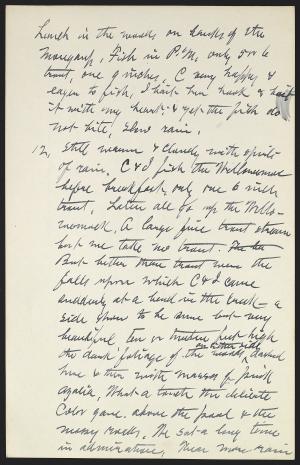 Lunch in the woods on banks of the
Moosup. Fish in P.M. only 5 or 6
trout, one 9 inches, C very happy &
eager to fish, I bait her hook & bait
it with my heart & yet the fish do
not bite, Slow rain.
12, Still warm & cloudy with spirts
of rain. C & I fish the
before breakfast, only one 6 inch
trout, Later all go up the
A large fine trout stream
but me take no trout.
But better than trout were the
falls upon which C & I came
suddenly at a bend in the creek - a
side show to be sure but very
beautiful, ten or twelve feet high
the dark foliage of the woods, on either side, dashed
here & there with masses of pink
azalia, What a touch the delicate
color gave. above the pool & the
mossy rocks. We sat a long time
in admiration, Then more rain